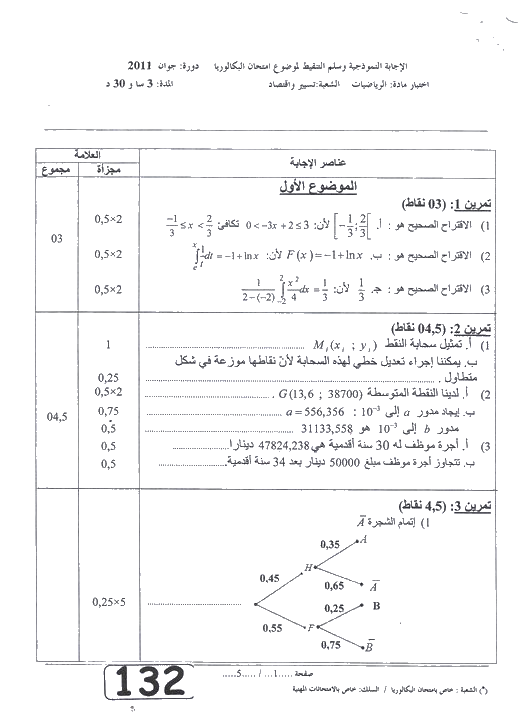 الإجابة النموذجية وسلم التنقيط لموضوع امتحان البكالوريا دورة: جوان 2011
اختبار مادة: الرياضيات الشعبة: تسيير واقتصاد المدة: 3 سا و 30 د
عناصر الإجابة العلامة
مجزأة مجموع
الموضوع الأول
تمرين 1: (03 نقاط)
1) الاقتراح الصحيح هو : أ. [-1/3 ; 2/3[ لأن: 0 < -3x + 2 ≤ 3 تكافئ -1/3 ≤ x < 2/3 0,5×2
2) الاقتراح الصحيح هو : ب. F(x) = -1 + ln x لأن: ∫_e^x 1/t dt = -1 + ln x 0,5×2
3) الاقتراح الصحيح هو : ج. 1/3 لأن: 1/(2-(-2)) ∫_{-2}^{2} x²/4 dx = 1/3 0,5×2
03
تمرين 2: (04,5 نقاط)
1) أ. تمثيل سحابة النقط M_i(x_i ; y_i) 1
ب. يمكننا إجراء تعديل خطي لهذه السحابة لأن نقاطها موزعة في شكل
متطاول . 0,25
2) أ. لدينا النقطة المتوسطة G(13,6 ; 38700) . 0,5×2
ب. إيجاد مدور a إلى 10⁻³ : a = 556,356 0,75
مدور b إلى 10⁻³ هو 31133,558 0,5
3) أ. أجرة موظف له 30 سنة أقدمية هي 47824,238 دينارا. 0,5
ب. تتجاوز أجرة موظف مبلغ 50000 دينار بعد 34 سنة أقدمية. 0,5
04,5
تمرين 3: (4,5 نقاط)
1) إتمام الشجرة A̅
0,35 A
H
0,45 0,65 A̅
0,25 B
0,25×5
0,55 F
0,75 B̅
132
صفحة 1 / 5
(*) الشعبة : خاص بامتحان البكالوريا / السلك: خاص بالامتحانات المهنية